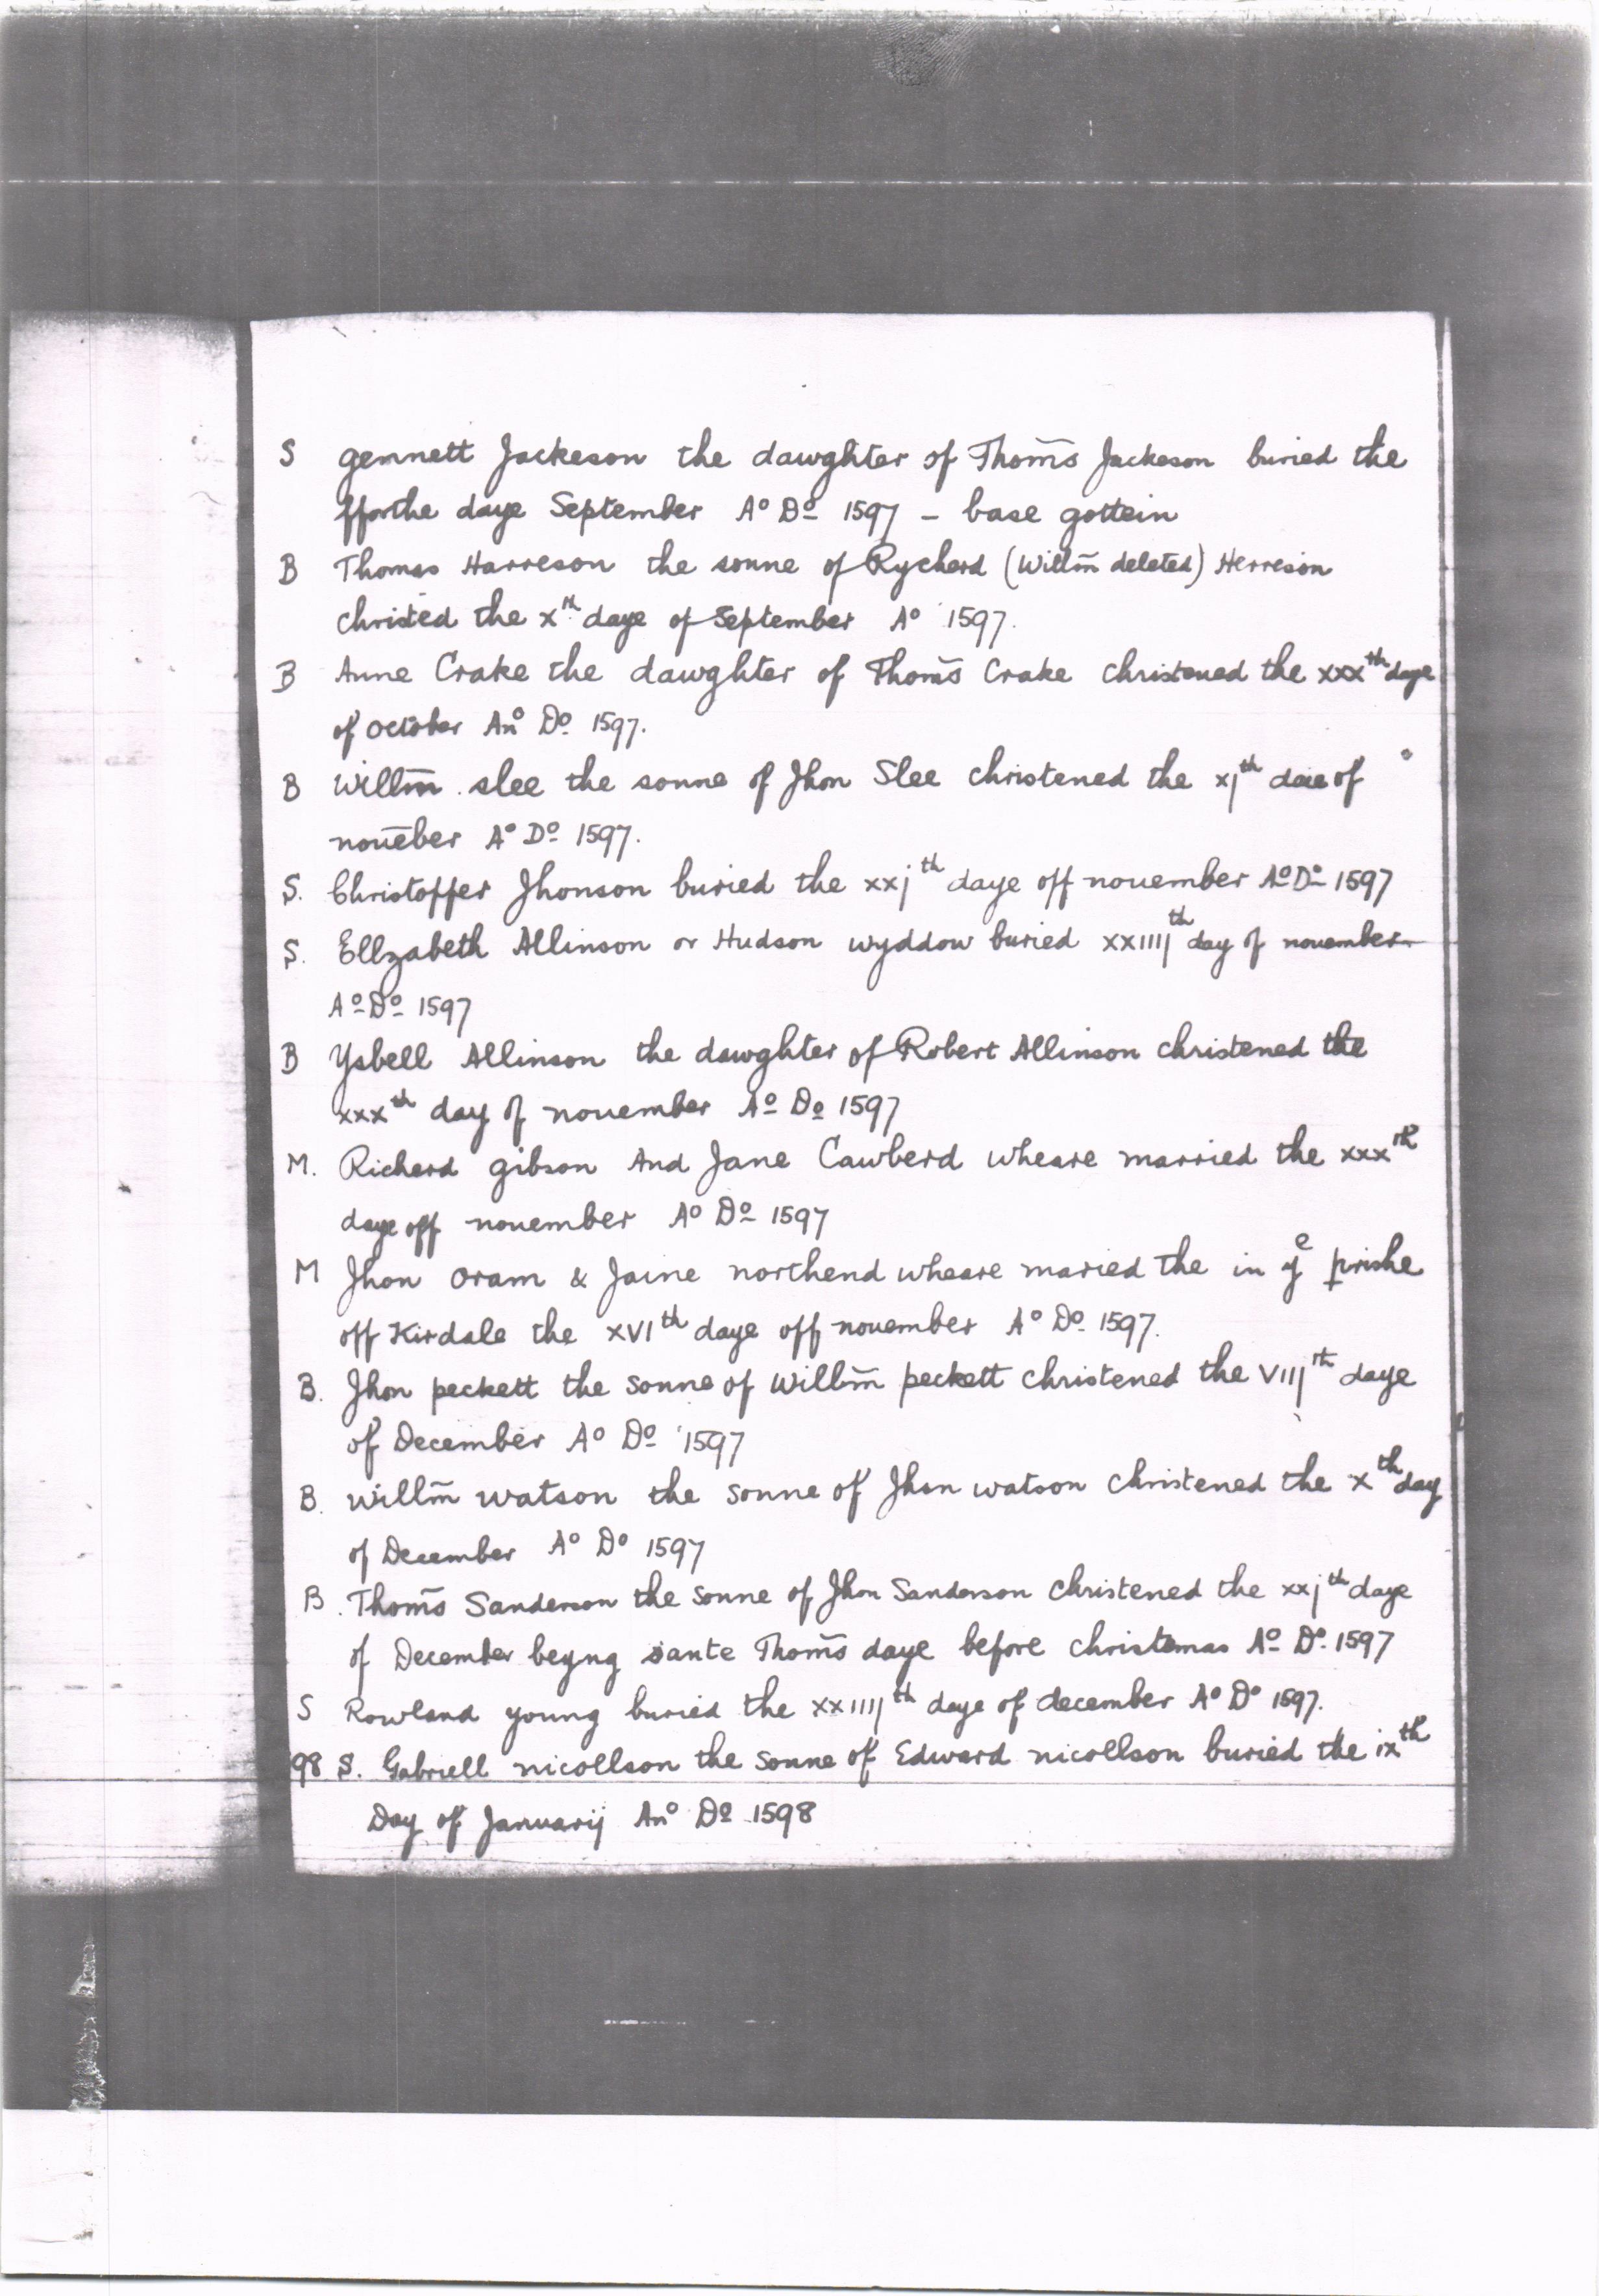 S gennett Jackeson the dawghter of Thom̄s Jackeson buried the
fforthe daye September Aº Dº 1597 - base gottein
B Thomas Harreson the sonne of Rycherd (Willm̄ deleted) Herreson
christed the xth daye of September Aº 1597.
B Anne Crake the dawghter of Thom̄s Crake christened the xxxth daye
of October Anº Dº 1597.
B Willm̄ slee the sonne of Jhon Slee christened the xjth daie of
nouēber Aº Dº 1597.
S. Christoffer Jhonson buried the xxjth daye off nouember Aº Dº 1597
S. Ellzabeth Allinson or Hudson wyddow buried xxiiijth day of nouember
Aº Dº 1597
B Ysbell Allinson the dawghter of Robert Allinson christened the
xxxth day of nouember Aº Dº 1597
M. Richard gibson And Jane Cawberd wheare married the xxxth
daye off nouember Aº Dº 1597
M Jhon Oram & Jaine northend wheare maried the in ye prishe
off Kirdale the XVIth daye off nouember Aº Dº 1597.
B. Jhon peckett the sonne of Willm̄ peckett christened the VIIjth daye
of December Aº Dº 1597
B. Willm̄ watson the sonne of Jhon watson christened the Xth day
of December Aº Dº 1597
B. Thom̄s Sanderson the sonne of Jhon Sanderson christened the xxjth daye
of December beyng sante Thom̄s daye before christemas Aº Dº 1597
S Rowland young buried the xxiiijth daye of december Aº Dº 1597.
98 S. Gabriell nicollson the sonne of Edward nicollson buried the ixth
Day of Januarij Anº Dº 1598